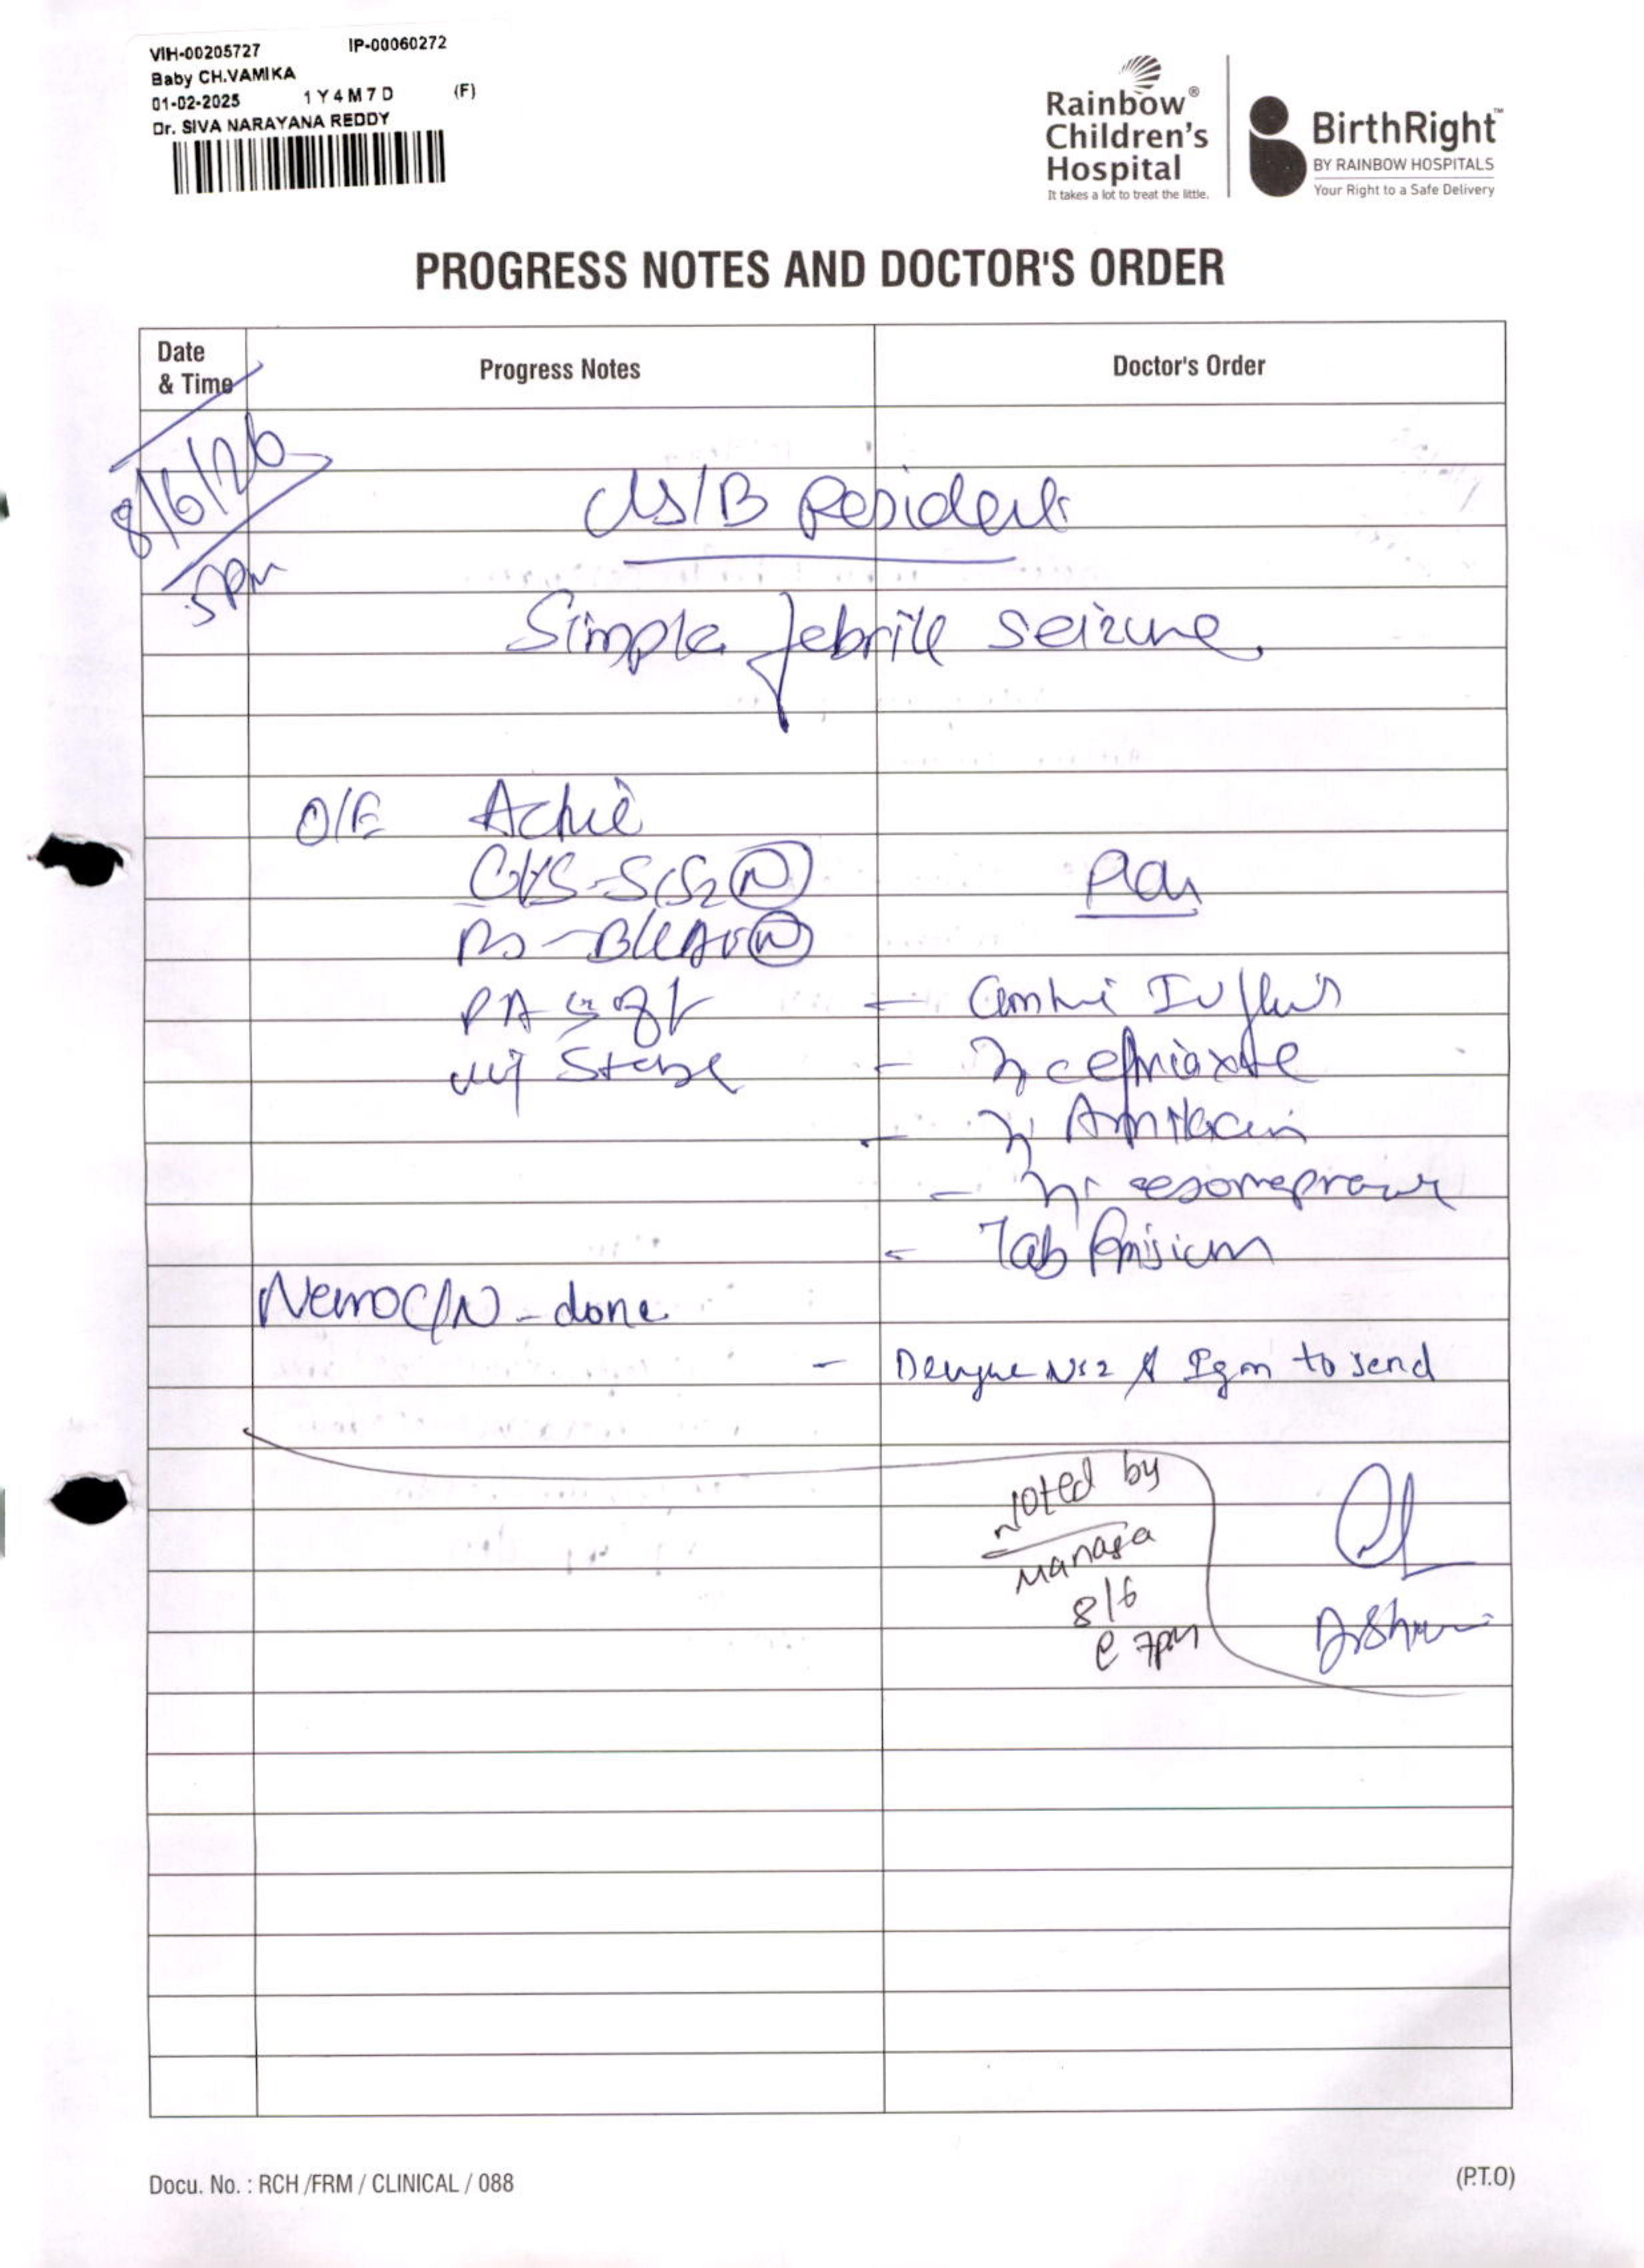 VIH-00205727 IP-00060272
Baby CH.VAMIKA
01-02-2025 1Y4M7D (F)
Dr. SIVA NARAYANA REDDY
Rainbow®
Children's
Hospital
It takes a lot to treat the little.
BirthRight™
BY RAINBOW HOSPITALS
Your Right to a Safe Delivery
PROGRESS NOTES AND DOCTOR'S ORDER
Date
& Time
Progress Notes
Doctor's Order
8/6/26
5pm
S/B Resident
Simple febrile seizure
O/E Active
CVS-S1S2 N
Plan
PA soft
IV
Stable
ceftriaxone
Amikacin
esomeprazole
Tab
Neuro C/N - done
- Dengue NS1 & Igm to send
noted by
Manasa
8/6
@ 7pm
Docu. No. : RCH /FRM / CLINICAL / 088
(P.T.O)